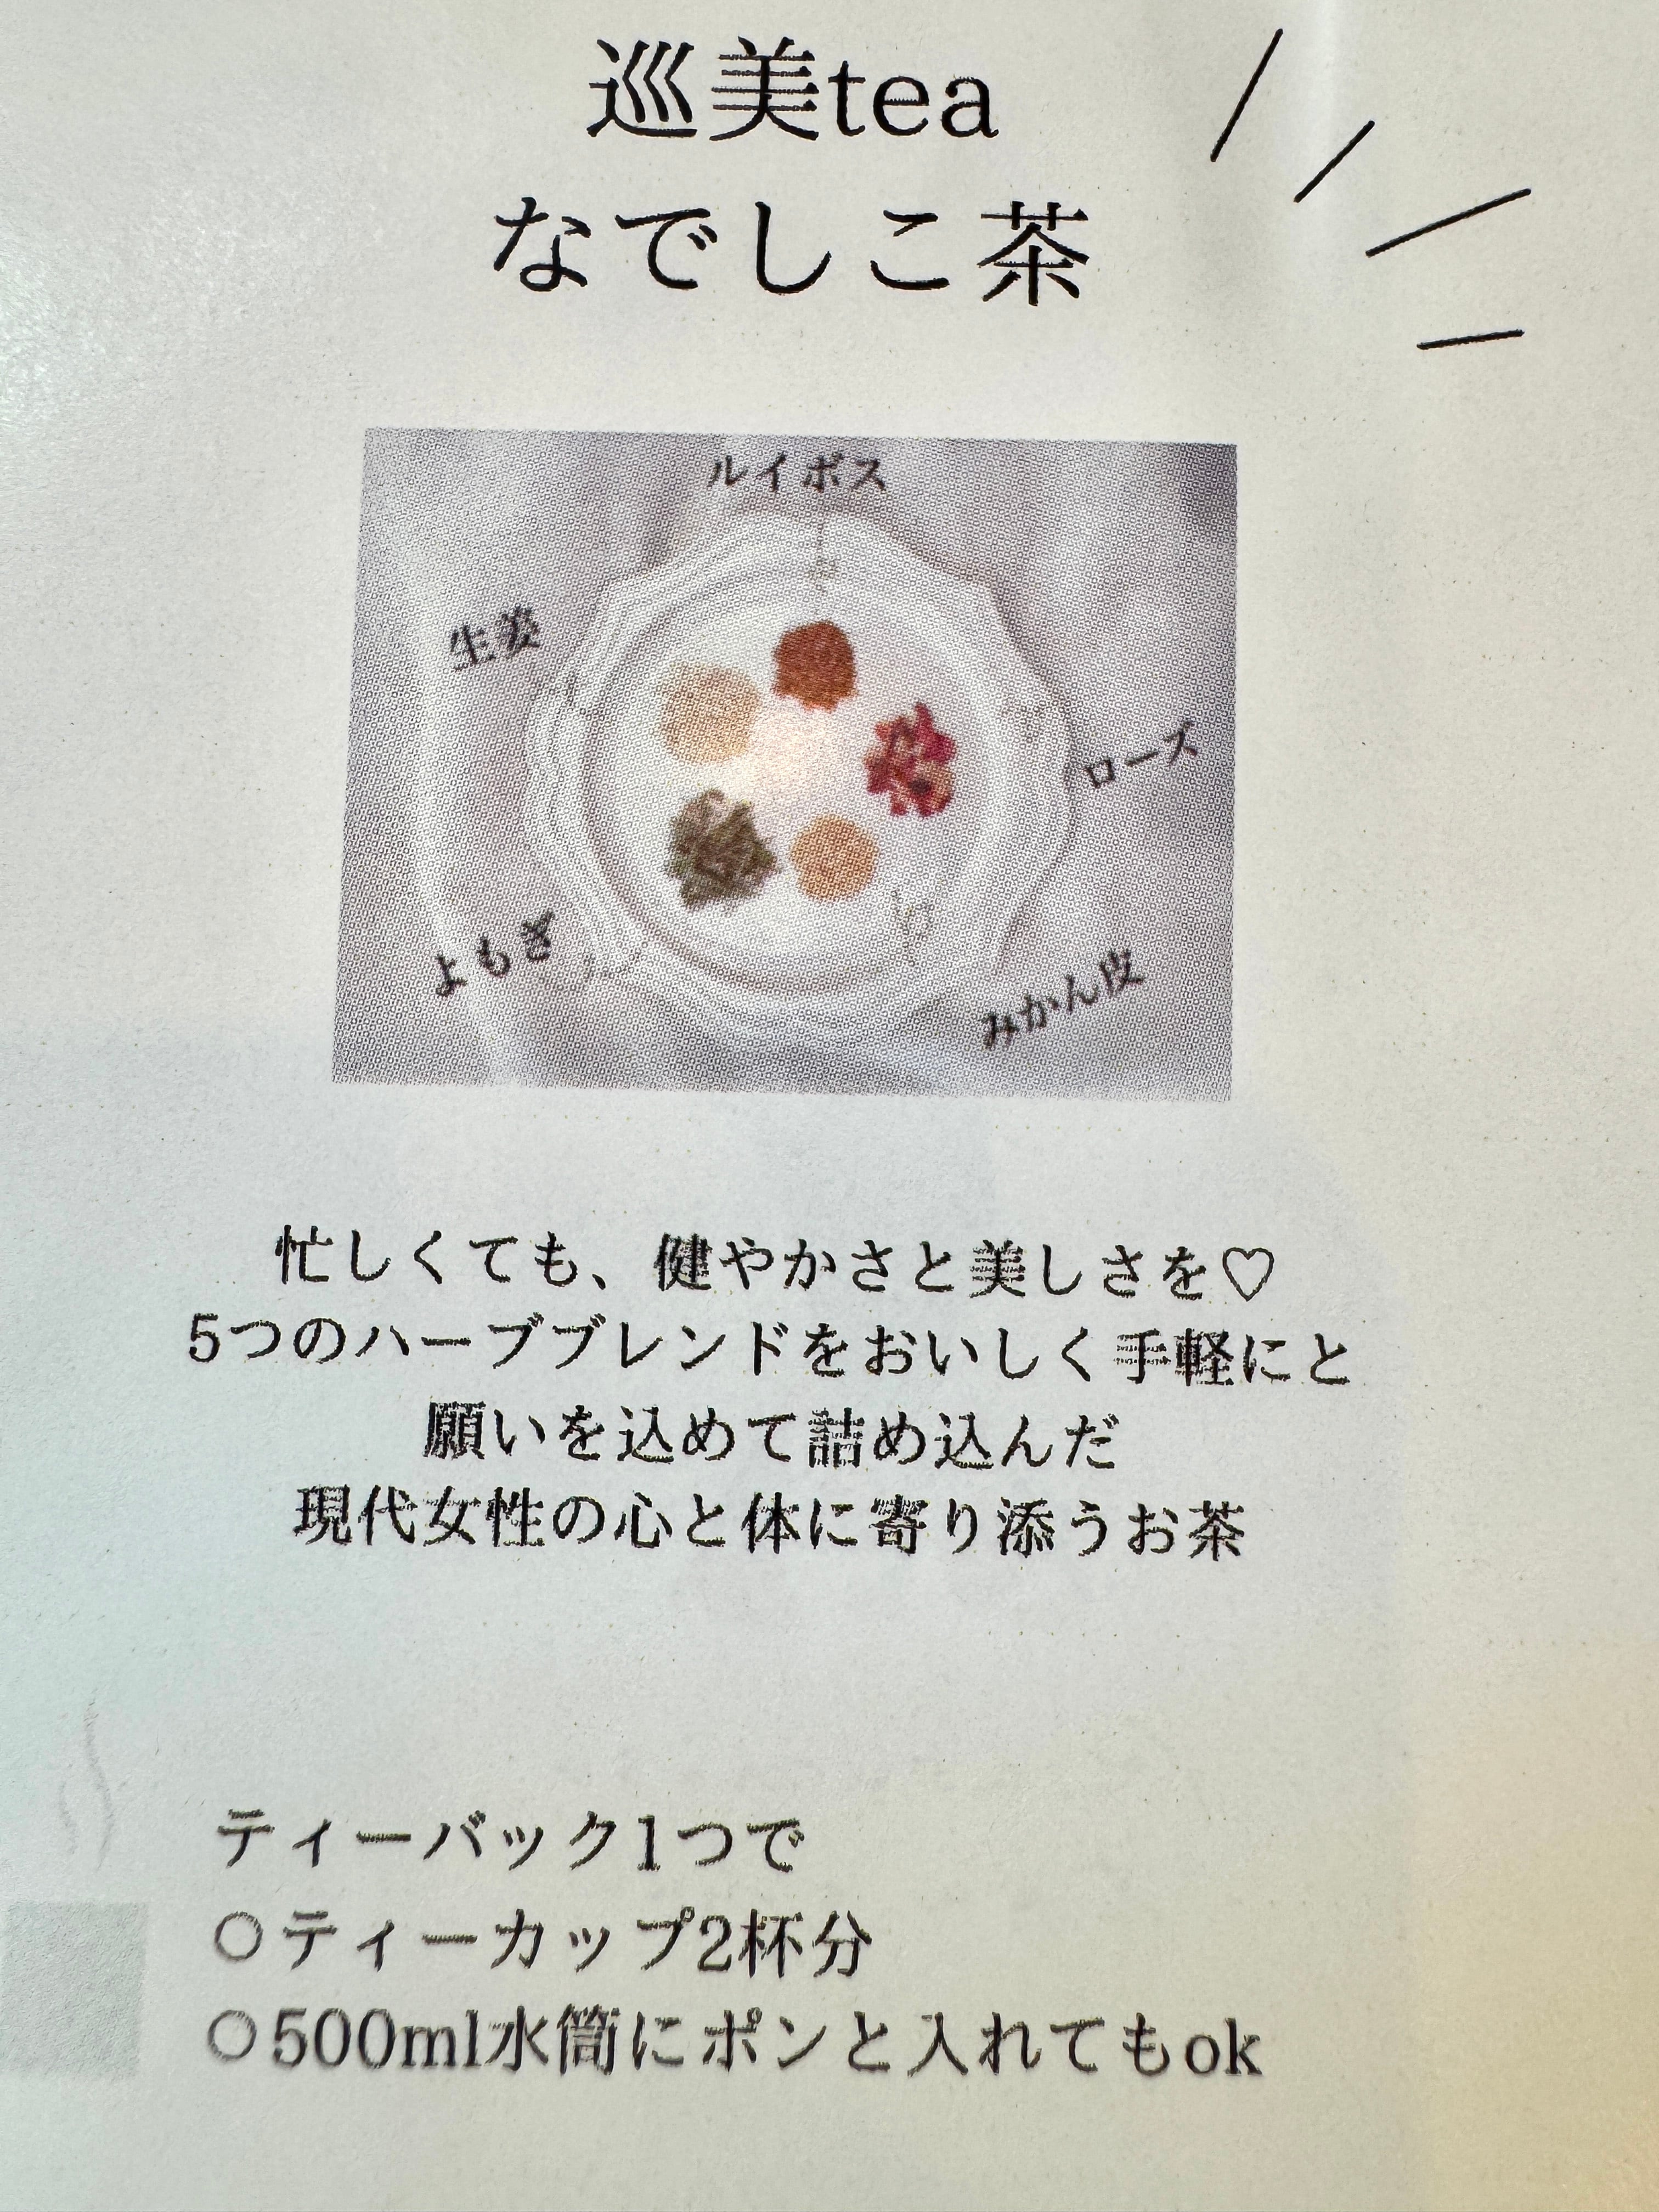 巡美tea
なでしこ茶
ルイボス
生姜
ローズ
よもぎ
みかん皮
忙しくても、健やかさと美しさを♡
5つのハーブブレンドをおいしく手軽にと
願いを込めて詰め込んだ
現代女性の心と体に寄り添うお茶
ティーバック1つで
○ティーカップ2杯分
○500ml水筒にポンと入れてもok